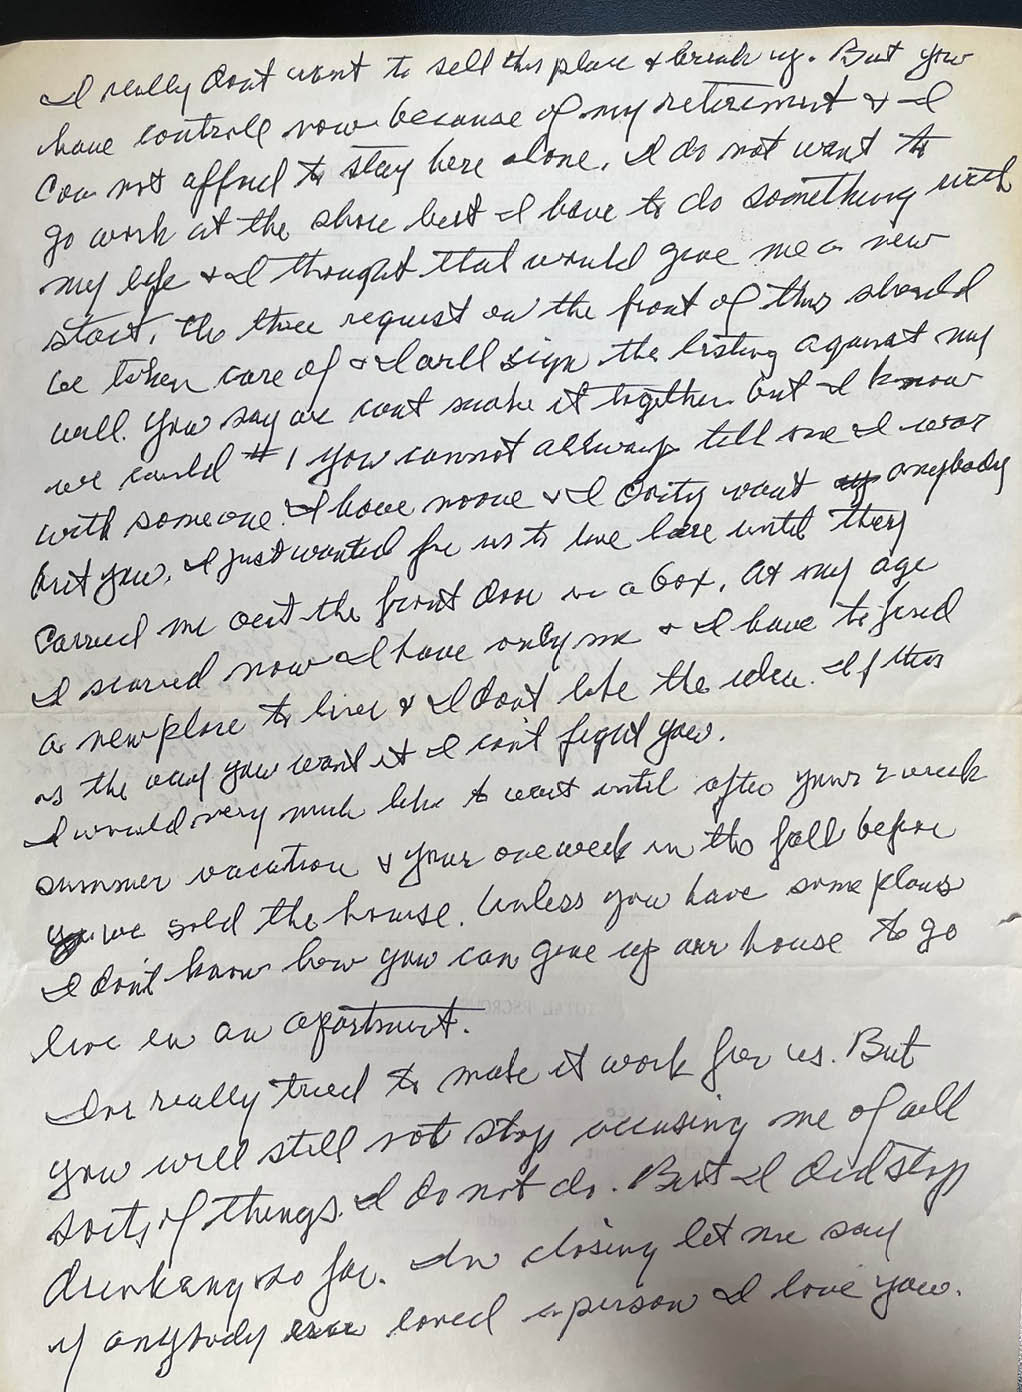 I really dont want to sell this place & break up. But you
have controll now because of my retirement & I
can not afford to stay here alone. I do not want to
go work at the shore but I have to do something with
my life & I thought that would give me a new
start. The three request on the front of this should
be taken care of & I will sign the listing against my
will. You say we cant make it together but I know
we could #1 you cannot allways tell me I was
with someone. I have noone & I dont want anybody
but you. I just wanted for us to live here until they
carried me out the front door in a box. At my age
I scared now I have only me & I have to find
a new place to live & I dont like the idea. If this
is the way you want it I can't fight you.
I would very much like to wait until after your 2 week
summer vacation & your one week in the fall before
we sold the house. Unless you have some plans
I don't know how you can give up our house to go
live in an apartment.
Ive really tried to make it work for us. But
you will still not stop accusing me of all
sorts of things I do not do. But I did stop
drinking so far. In closing let me say
if anybody ever loved a person I love you.